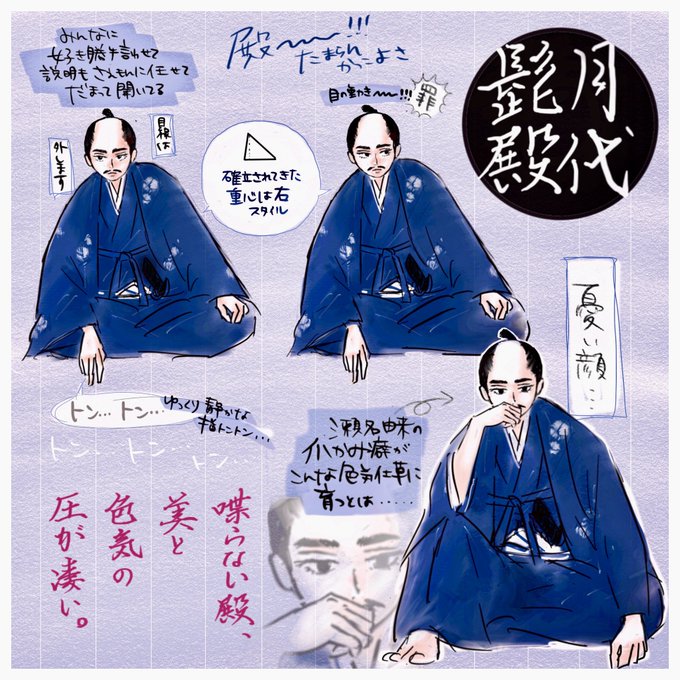 みんなに
好き勝手言わせて
説明もさえもんに任せて
だまって聞いてる
殿〜〜!!!
たまらん
かっこよさ
月代
髭殿
目の動き〜〜!!!
罪
目線は
外します
確立されてきた
重心は右
スタイル
憂い顔…
トン… トン…
ゆっくり 静かな
指トントン…
トン… トン… トン…
瀬名由来の
爪かみ癖が
こんな色気仕草に
育つとは……
喋らない殿、
美と
色気の
圧が凄い。